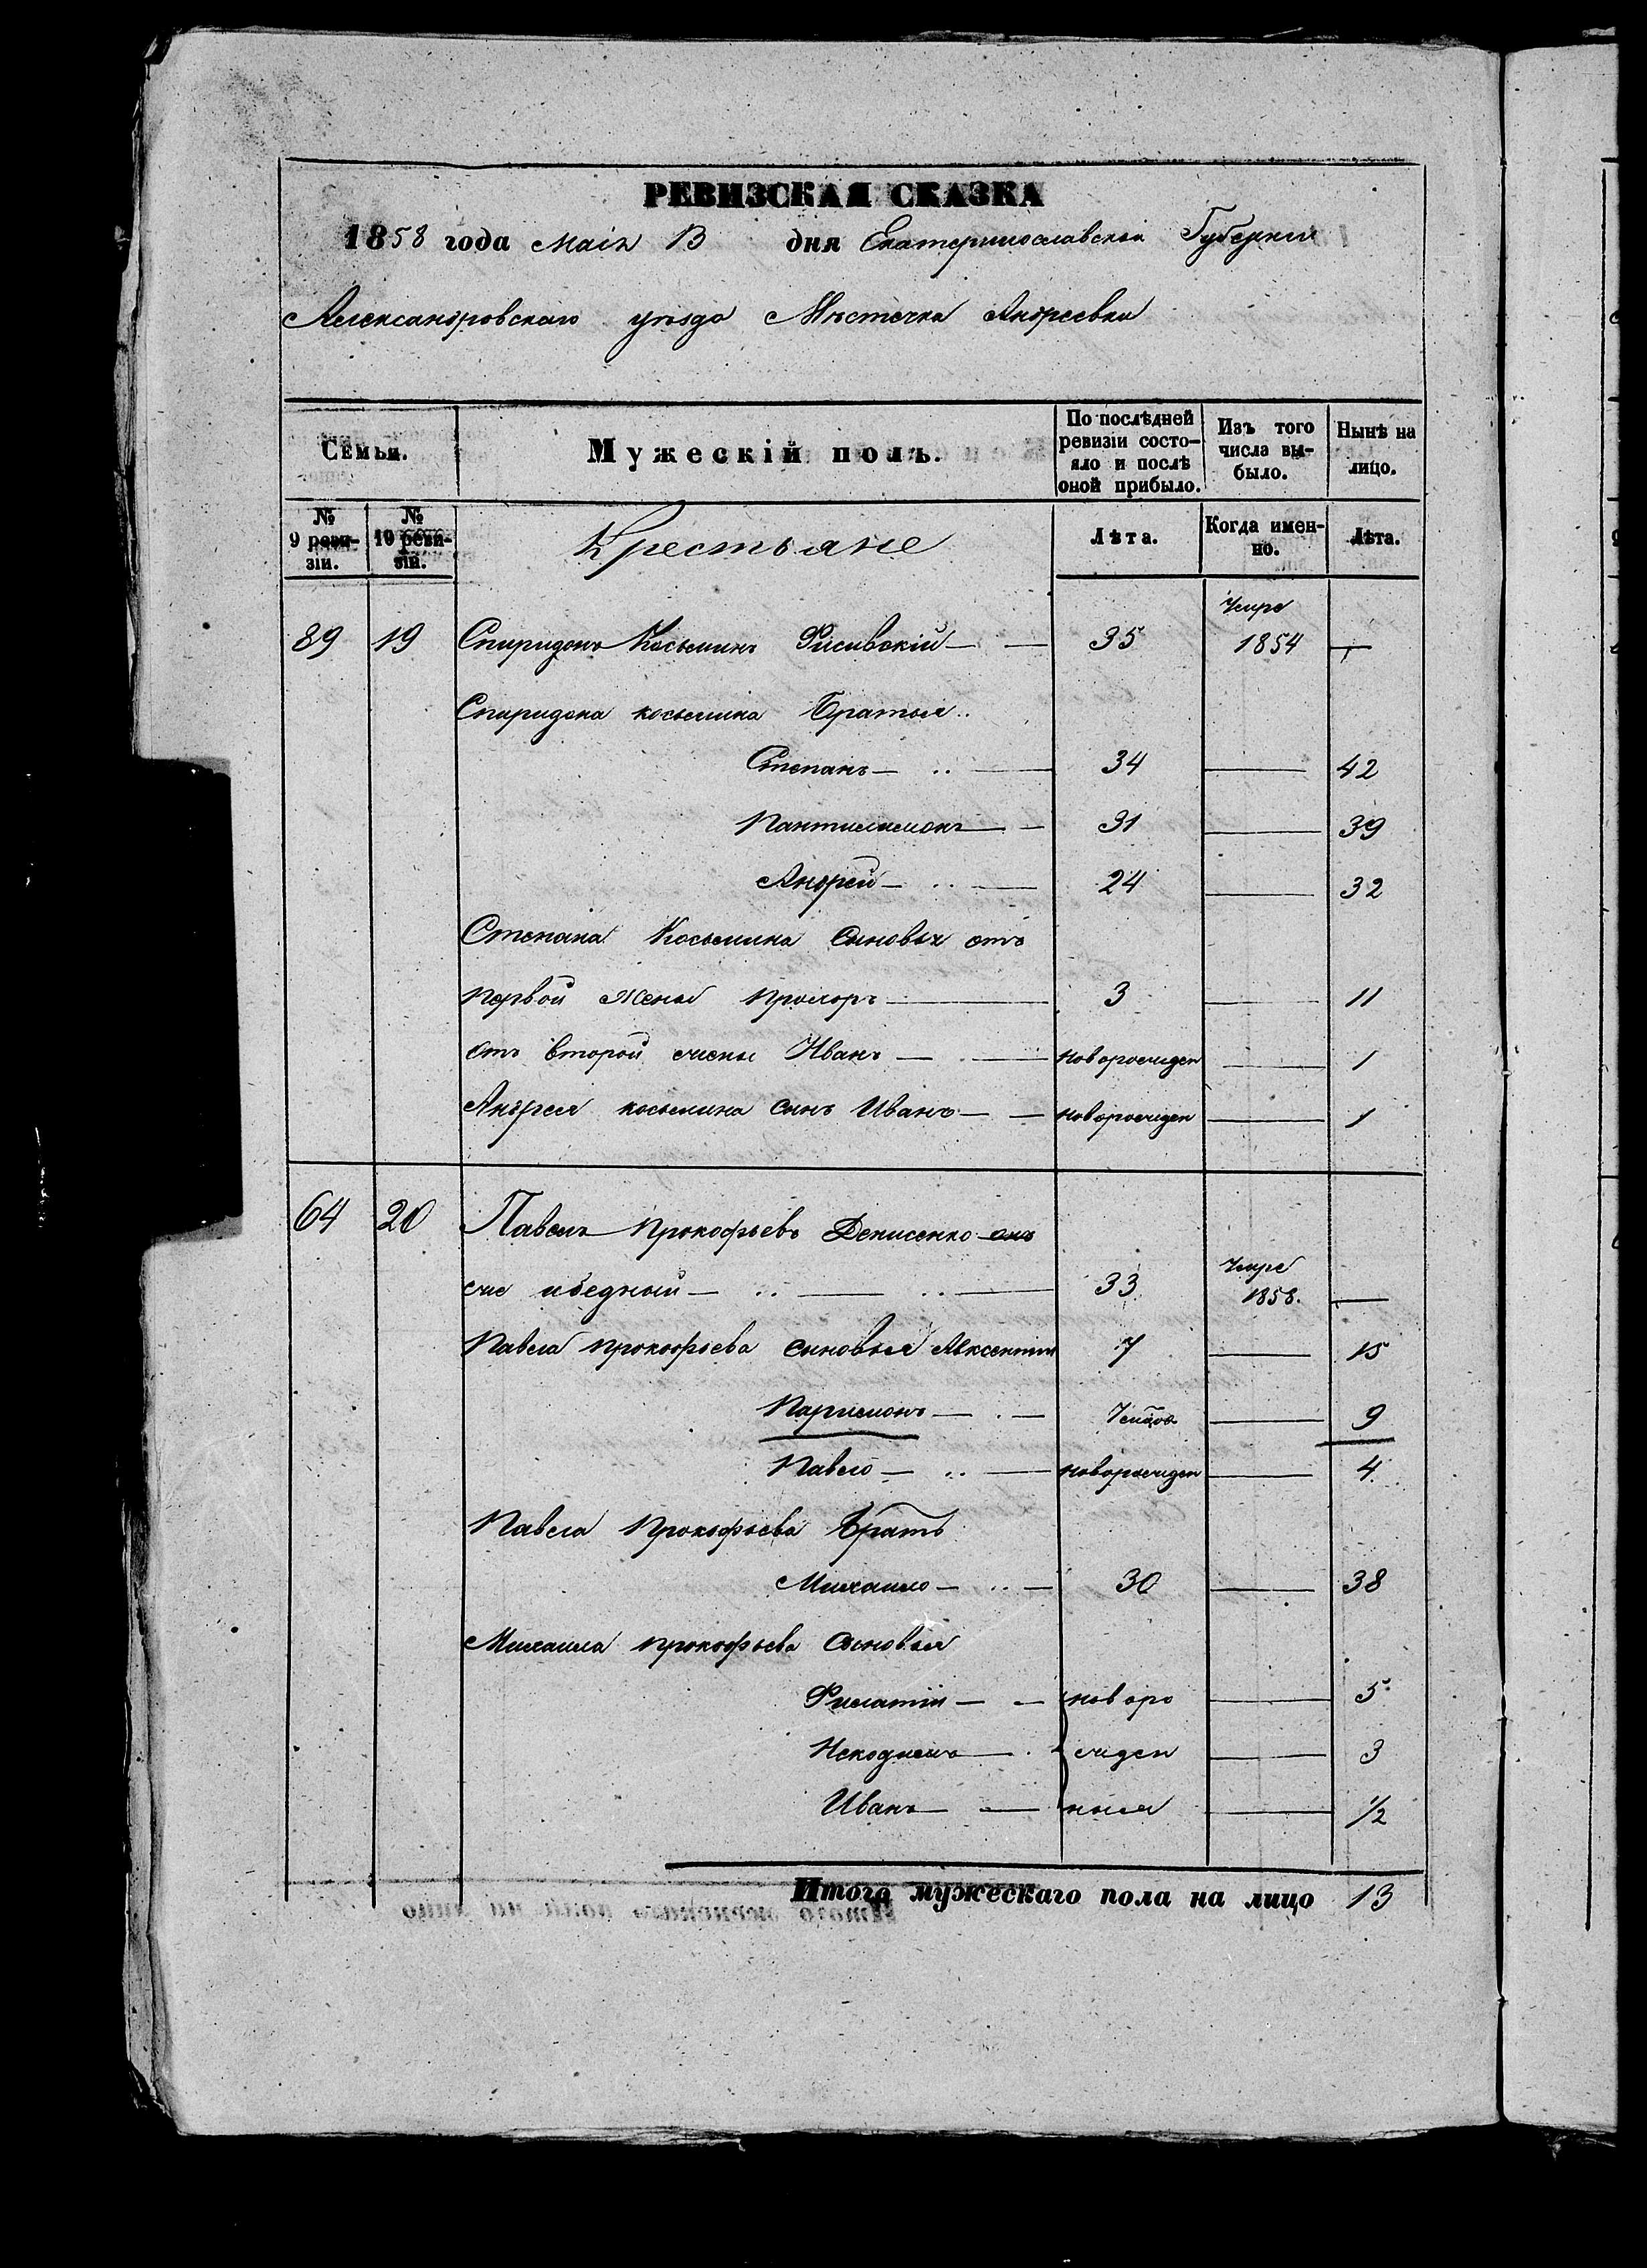 РЕВИЗСКАЯ СКАЗКА
1858 года Маія 13 дня Екатеринославской Губерніи
Александровскаго уѣзда Мѣстечка Андреевки
Семьи.
Мужескій полъ.
По послѣдней ревизіи состояло и послѣ оной прибыло.
Изъ того числа выбыло.
Нынѣ на лицо.
№ 9 ревизіи.
№ 10 ревизіи.
Крестьяне
Лѣта.
Когда именно.
Лѣта.
89 19 Спиридонъ Косьминъ — — 35 Умре 1854 —
Спиридона косьмина Братья..
Степанъ — .. — 34 — 42
Пантилимонъ — — 31 — 39
Андрей — .. — 24 — 32
Степана Косьмина сыновья отъ
первой Жены Прохоръ — 3 — 11
отъ второй жены Иванъ — . — новорожден — 1
Андрея косьмина сынъ Иванъ — — новорожден — 1
64 20 Павелъ Прокофьевъ Денисенко онъ
же — .. — .. — 33 Умре 1858. —
Павла Прокофьева сыновья Авксентій 7 — 15
Паримонъ — . — — 9
Павло — .. — новорожден — 4
Павла Прокофьева Братъ
Михаило — .. — 30 — 38
Михаила Прокофьева Сыновья
Филатій — — новоро — 5
Никодимъ — . жден — 3
Иванъ — — ныя — 1/2
Итого мужескаго пола на лицо 13